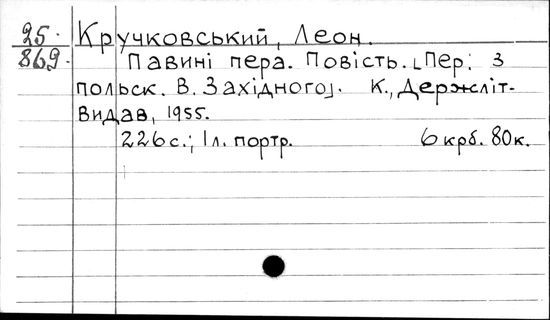 25.
869.
Кручковський, Леон.
Павині пера. Повість. [Пер. з
польск. В. Західного]. К., Держліт-
видав, 1955.
226 с.; 1 л. портр. 6 крб. 80 к.